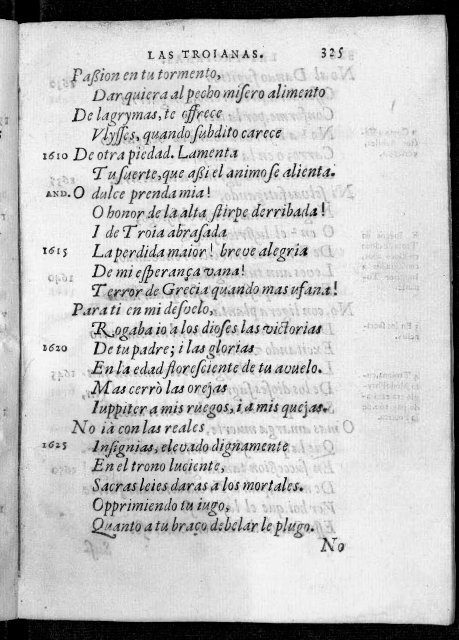 LAS TROIANAS. 325
Paßion en tu tormento,
Dar quiera al pecho misero alimento
De lagrymas, te offrece
Vlysses, quando subdito carece
1610 De otra piedad. Lamenta
Tu suerte, que aßi el animo se alienta.
AND. O dulce prenda mia!
O honor de la alta stirpe derribada!
I de Troia abrasada
1615 La perdida maior! breve alegria
De mi esperança vana!
Terror de Grecia quando mas ufana!
Para ti en mi desvelo,
Rogaba io a los dioses las victorias
1620 De tu padre; i las glorias
En la edad floresciente de tu avuelo.
Mas cerrò las orejas
Iuppiter a mis ruegos, i a mis quejas.
No ià con las reales
1625 Insignias, elevado dignamente
En el trono luciente,
Sacras leies daras a los mortales.
Opprimiendo tu iugo,
Quanto a tu braço debelar le plugo.
No